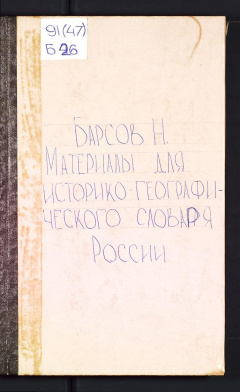 91(47)
Б26
Барсов Н.
Материалы для
историко-географи-
ческого словаря
России